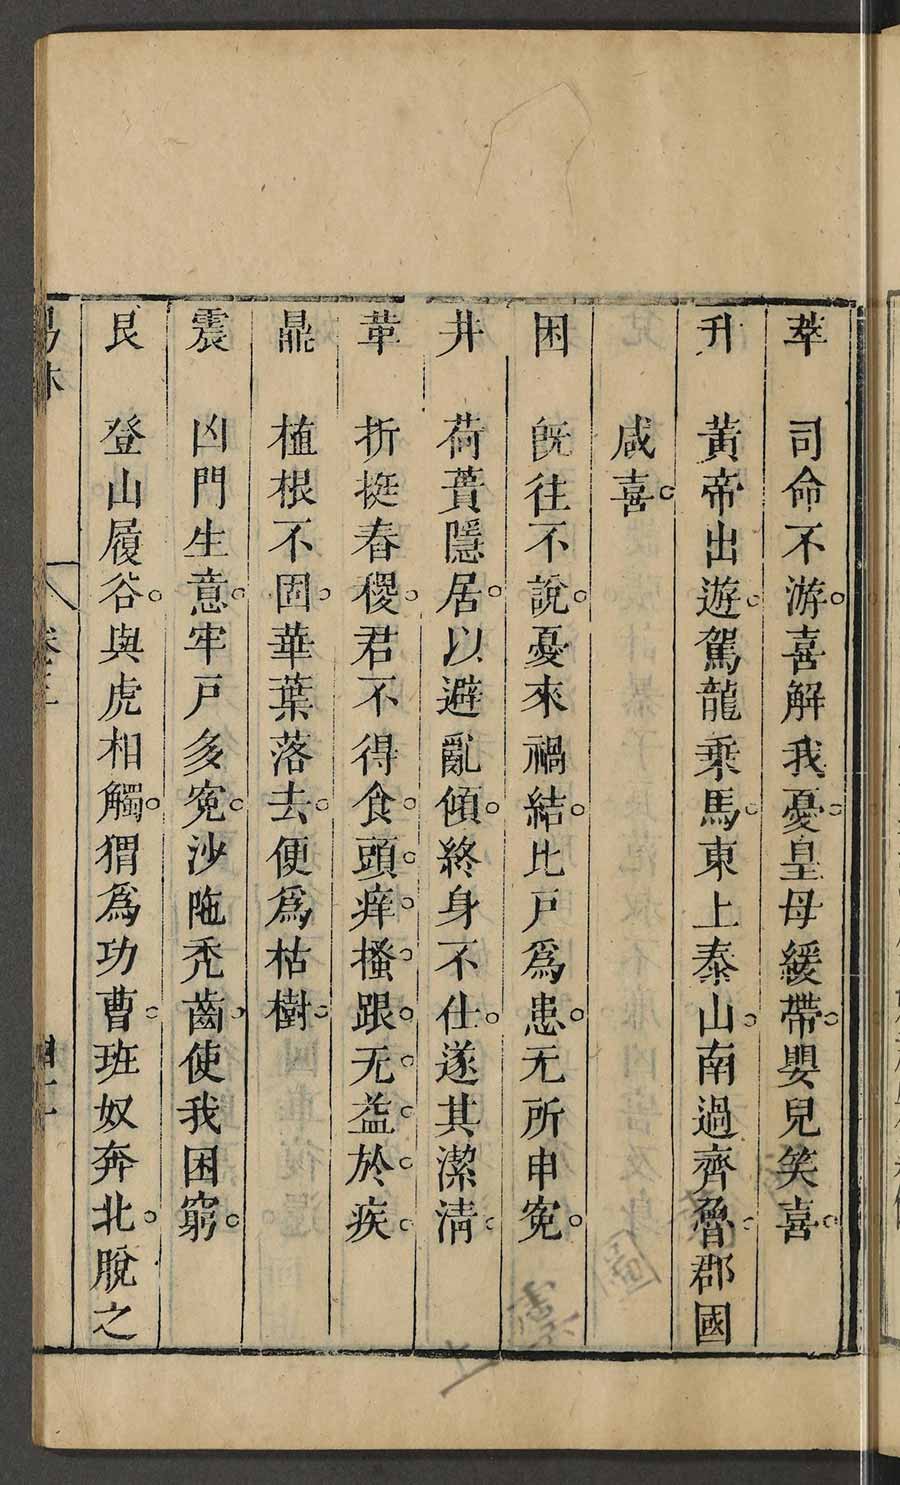 萃　司命不游。喜解我憂。皇母緩帶。嬰兒笑喜。
升　黃帝出遊。駕龍乘馬。東上泰山。南過齊魯。郡國
咸喜。
困　旣往不說。憂來禍結。比戶爲患。无所申寃。
井　荷蕢隱居。以避亂傾。終身不仕。遂其潔清。
革　折挺舂稷。君不得食。頭。痒。搔。跟。无。益。於。疾。
鼎　植根不固。華葉落去。便爲枯樹。
震　凶門生意。牢戶多寃。沙陁禿齒。使我困窮。
艮　登山履谷。與虎相觸。猬爲功曹。班奴奔北。脫之
易林　卷三